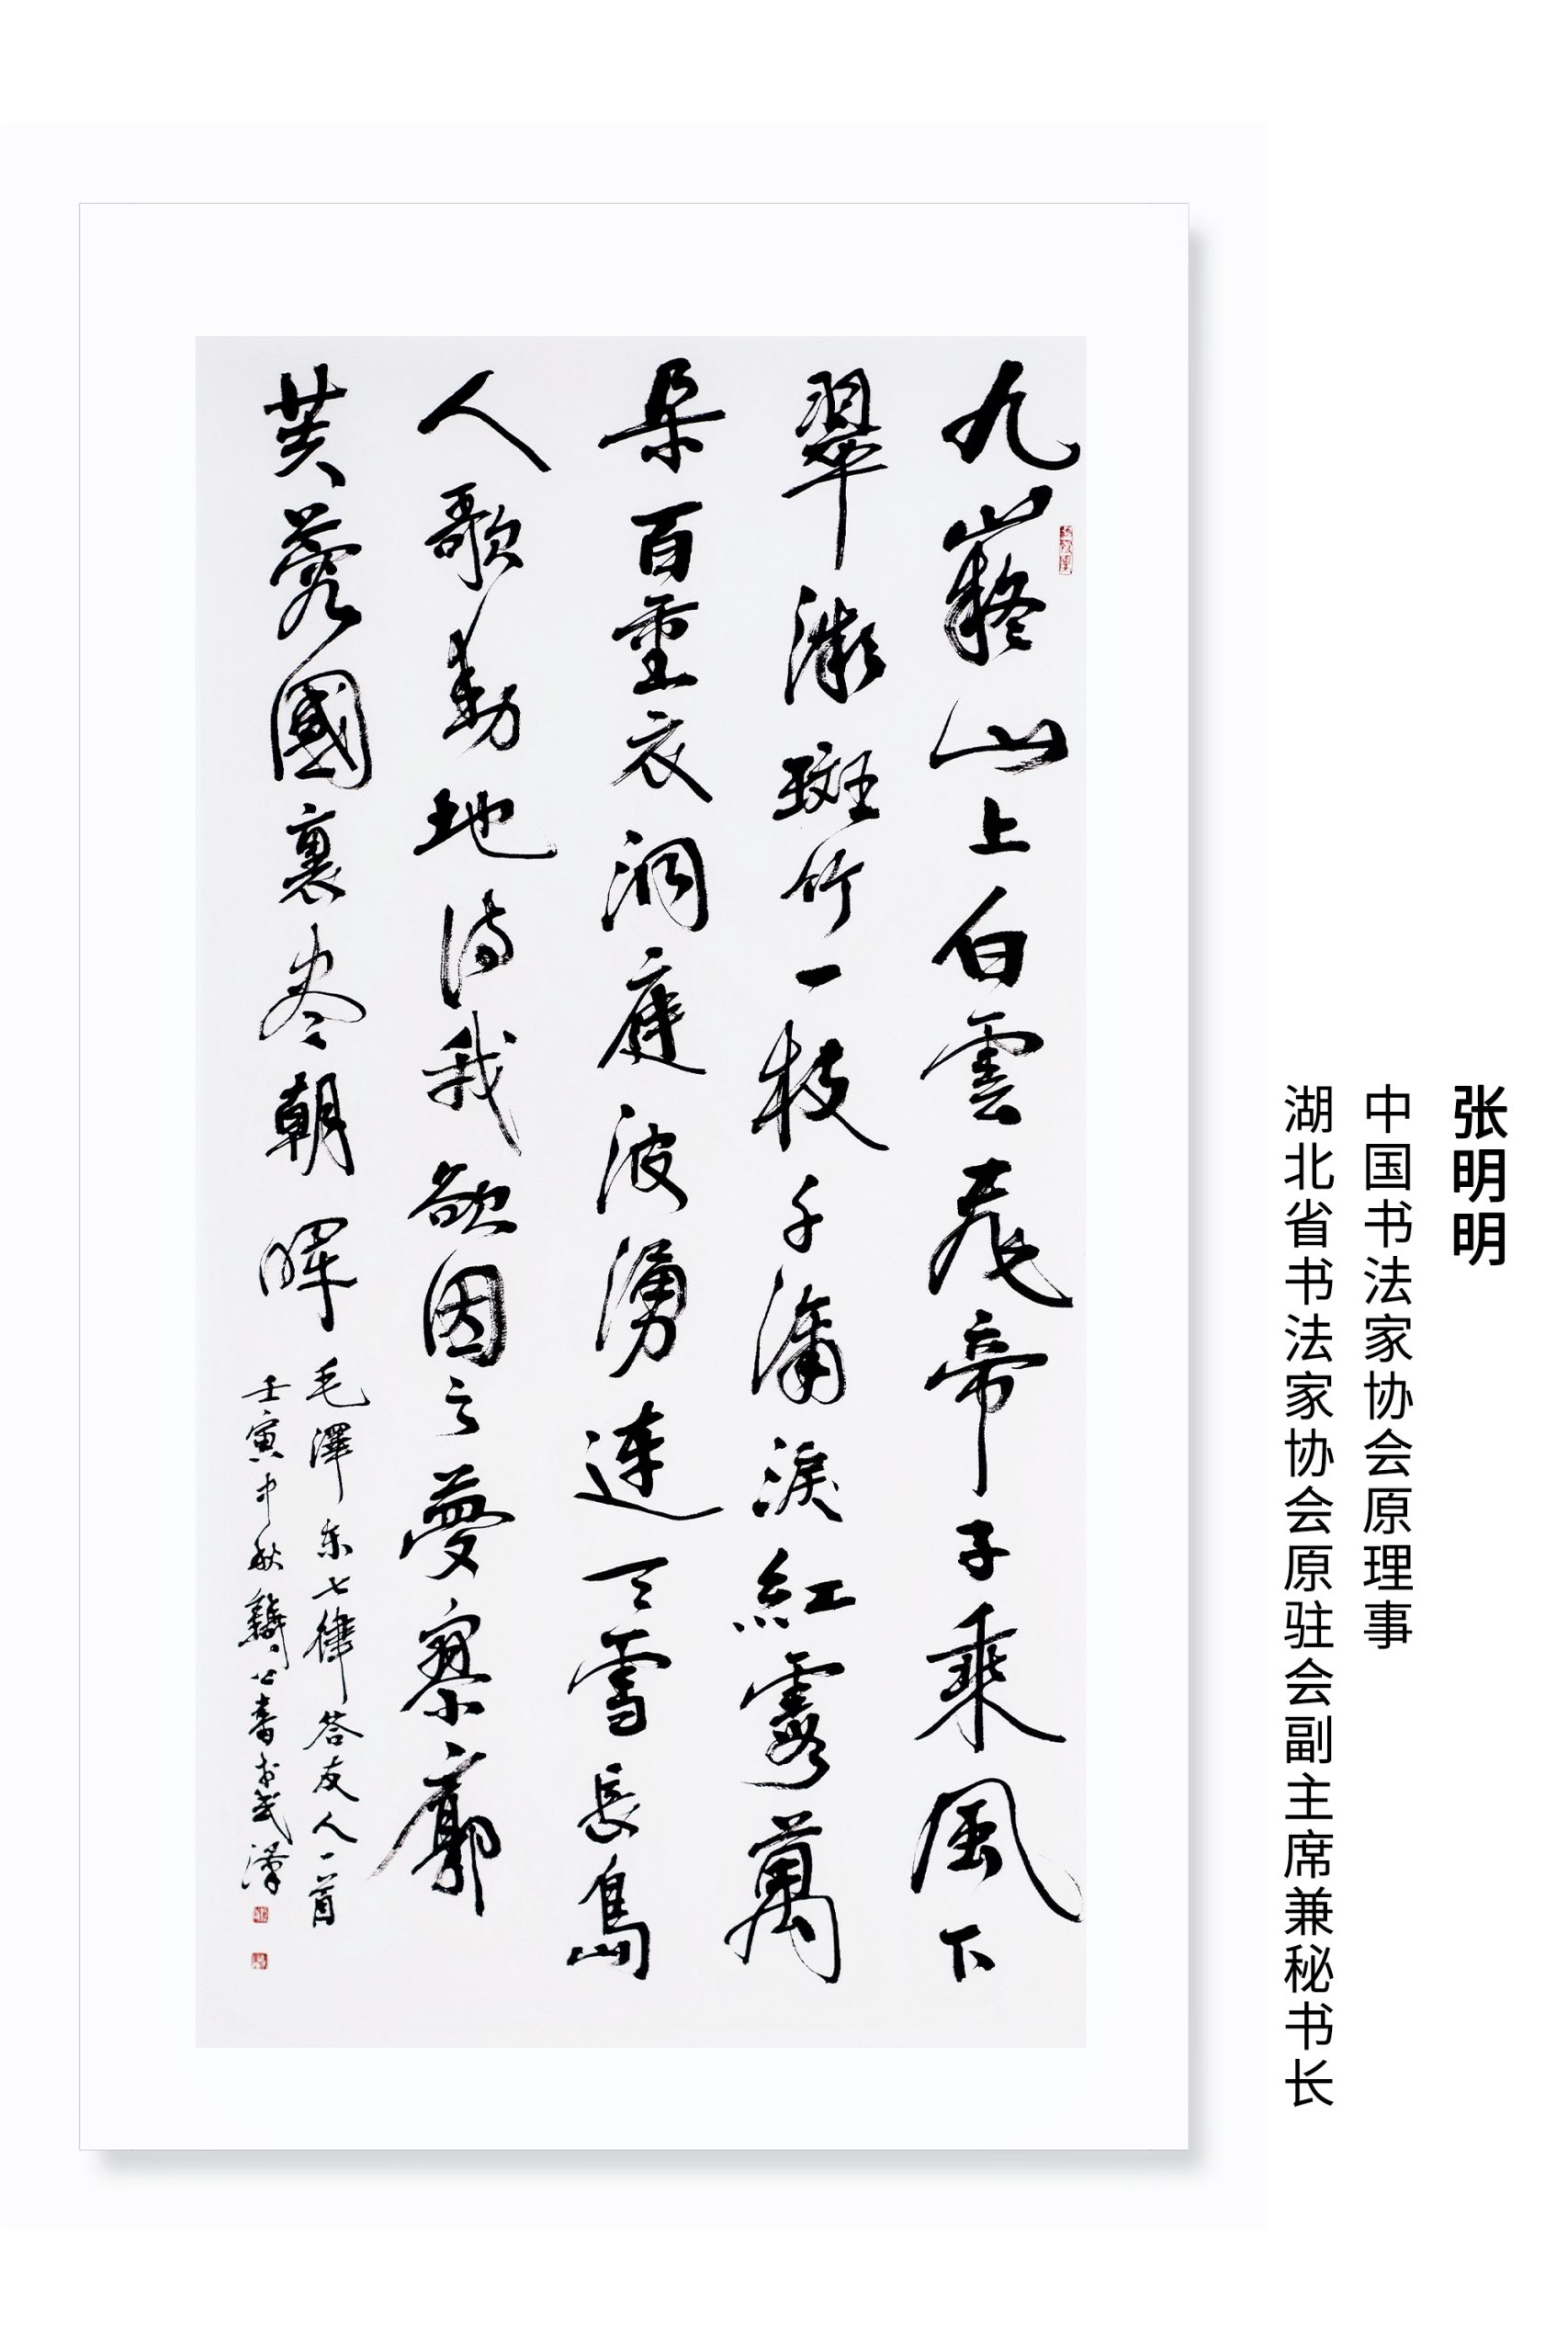 张明明
中国书法家协会原理事
湖北省书法家协会原驻会副主席兼秘书长
九嶷山上白雲飛帝子乘風下
翠微斑竹一枝千滴淚紅霞萬
朵百重衣洞庭波湧連天雪長島
人歌動地詩我欲因之夢寥廓
芙蓉國裏尽朝暉
毛澤东七律答友人一首
壬寅中秋書於武漢